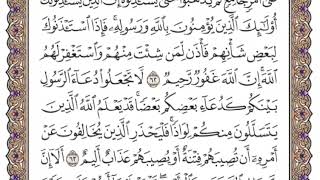 أُوْلَٰٓئِكَ ٱلَّذِينَ يُؤْمِنُونَ بِٱللَّهِ وَرَسُولِهِۦۚ فَإِذَا ٱسْتَـْٔذَنُوكَ
لِبَعْضِ شَأْنِهِمْ فَأْذَن لِّمَن شِئْتَ مِنْهُمْ وَٱسْتَغْفِرْ لَهُمُ
ٱللَّهَۚ إِنَّ ٱللَّهَ غَفُورٌ رَّحِيمٌ ٦٢ لَّا تَجْعَلُوا۟ دُعَآءَ ٱلرَّسُولِ
بَيْنَكُمْ كَدُعَآءِ بَعْضِكُم بَعْضًاۚ قَدْ يَعْلَمُ ٱللَّهُ ٱلَّذِينَ
يَتَسَلَّلُونَ مِنكُمْ لِوَاذًاۚ فَلْيَحْذَرِ ٱلَّذِينَ يُخَالِفُونَ عَنْ
أَمْرِهِۦٓ أَن تُصِيبَهُمْ فِتْنَةٌ أَوْ يُصِيبَهُمْ عَذَابٌ أَلِيمٌ ٦٣ أَلَآ إِنَّ